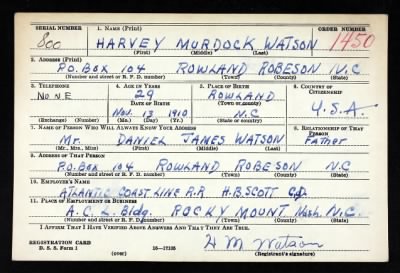 SERIAL NUMBER 1. NAME (Print) ORDER NUMBER
800 HARVEY MURDOCK WATSON 1450
(First) (Middle) (Last)
2. ADDRESS (Print)
P.O. BOX 104 ROWLAND ROBESON N.C
(Number and street or R. F. D. number) (Town) (County) (State)
3. TELEPHONE 4. AGE IN YEARS 5. PLACE OF BIRTH 6. COUNTRY OF CITIZENSHIP
NONE 29 ROWLAND U.S.A.
DATE OF BIRTH (Town or county)
Nov. 13 1910 N.C
(Exchange) (Number) (Mo.) (Day) (Yr.) (State or country)
7. NAME OF PERSON WHO WILL ALWAYS KNOW YOUR ADDRESS 8. RELATIONSHIP OF THAT PERSON
Mr. DANIEL JAMES WATSON FATHER
(Mr., Mrs., Miss) (First) (Middle) (Last)
9. ADDRESS OF THAT PERSON
P.O. BOX 104 ROWLAND ROBESON N.C
(Number and street or R. F. D. number) (Town) (County) (State)
10. EMPLOYER'S NAME
ATLANTIC COAST LINE R.R H.B. SCOTT
11. PLACE OF EMPLOYMENT OR BUSINESS
A.C.L. Bldg. ROCKY MOUNT Nash. N.C.
(Number and street or R. F. D. number) (Town) (County) (State)
I AFFIRM THAT I HAVE VERIFIED ABOVE ANSWERS AND THAT THEY ARE TRUE.
REGISTRATION CARD H M Watson
D. S. S. Form 1 (over) 16—17105 (Registrant's signature)